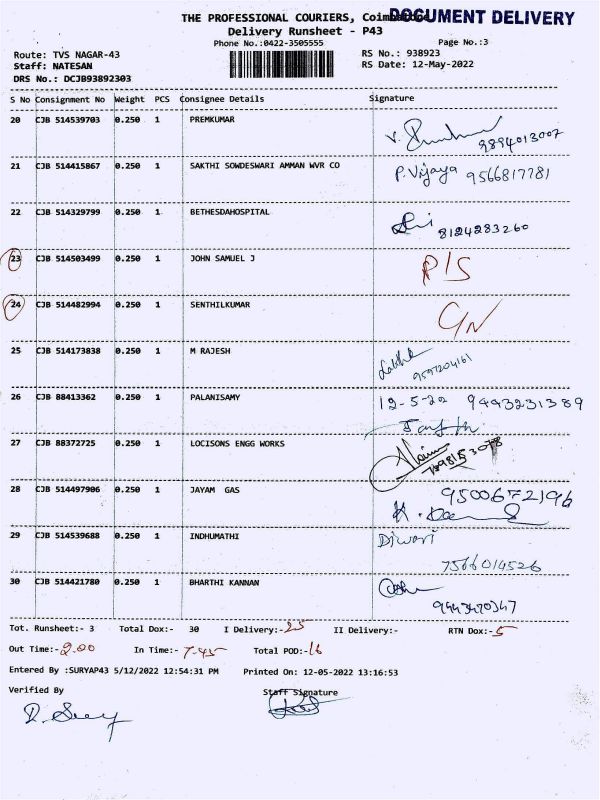 THE PROFESSIONAL COURIERS, Coimbatore
DOCUMENT DELIVERY
Delivery Runsheet - P43
Phone No.:0422-3505555
Page No.:3
Route: TVS NAGAR-43
RS No.: 938923
Staff: NATESAN
RS Date: 12-May-2022
DRS No.: DCJB93892303
S No Consignment No Weight PCS Consignee Details Signature
20 CJB 514539703 0.250 1 PREMKUMAR
9894013007
21 CJB 514415867 0.250 1 SAKTHI SOWDESWARI AMMAN WVR CO P.Vijaya 9566817781
22 CJB 514329799 0.250 1 BETHESDAHOSPITAL 8124283260
23 CJB 514503499 0.250 1 JOHN SAMUEL J
24 CJB 514482994 0.250 1 SENTHILKUMAR
25 CJB 514173838 0.250 1 M RAJESH
9597204161
26 CJB 88413362 0.250 1 PALANISAMY 12-5-22 9443231389
27 CJB 88372725 0.250 1 LOCISONS ENGG WORKS
28 CJB 514497906 0.250 1 JAYAM GAS 9500672196
29 CJB 514539688 0.250 1 INDHUMATHI Diwari
7566014526
30 CJB 514421780 0.250 1 BHARTHI KANNAN
9443470347
Tot. Runsheet:- 3 Total Dox:- 30 I Delivery:-25 II Delivery:- RTN Dox:-5
Out Time:-2.00 In Time:-7.45 Total POD:-16
Entered By :SURYAP43 5/12/2022 12:54:31 PM Printed On: 12-05-2022 13:16:53
Verified By Staff Signature